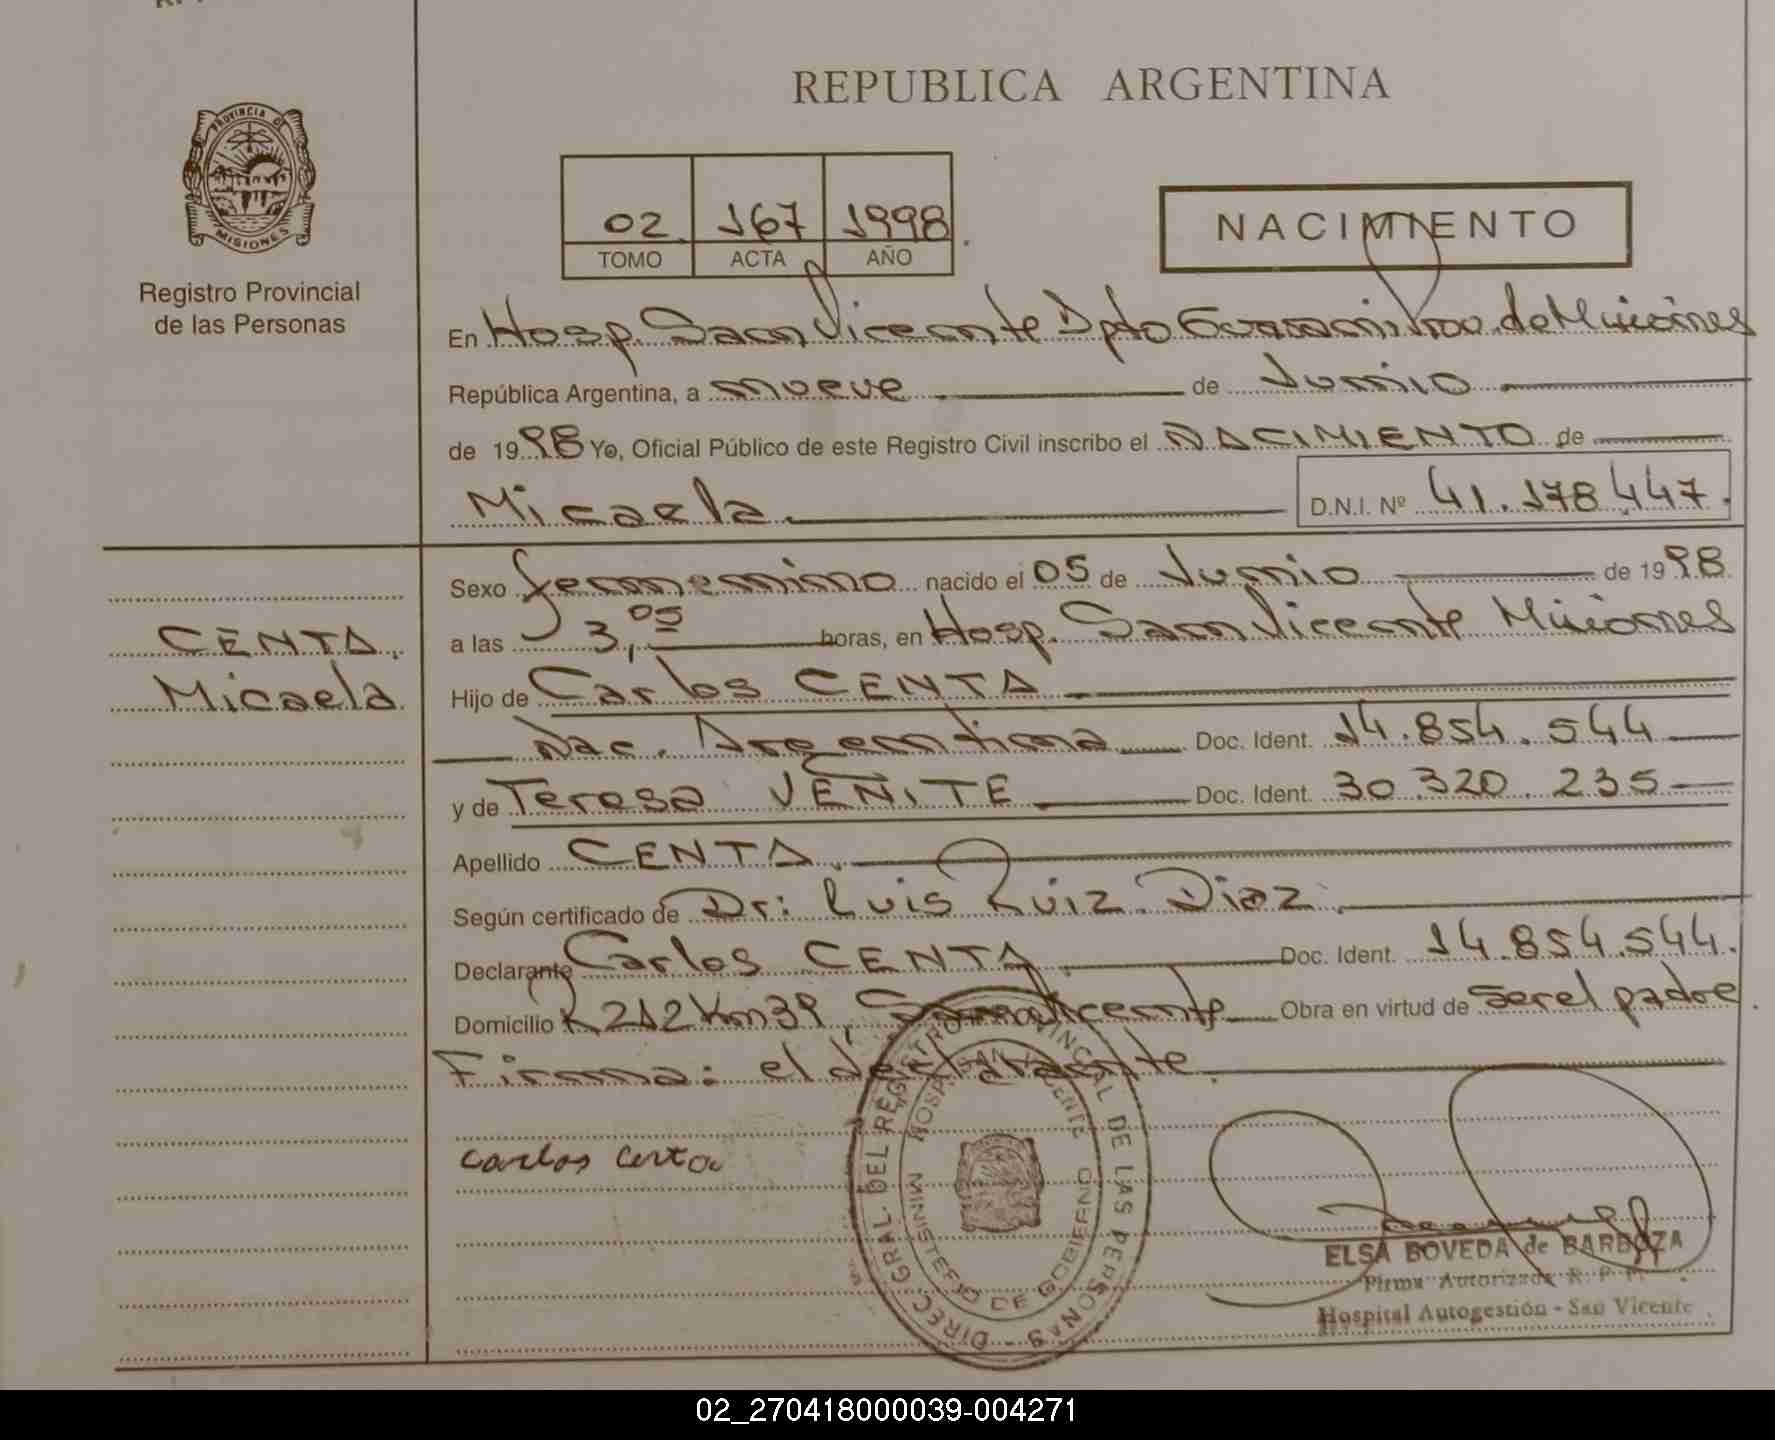 REPUBLICA ARGENTINA
PROVINCIA DE
MISIONES
Registro Provincial
de las Personas
02 167 1998
TOMO ACTA AÑO
NACIMIENTO
En Hosp. San Vicente Dpto Guarani Prov. de Misiones
República Argentina, a nueve de Junio
de 1998 Yo, Oficial Público de este Registro Civil inscribo el NACIMIENTO de
Micaela D.N.I. Nº 41.178.447.
CENTA,
Micaela
Sexo femenino nacido el 05 de Junio de 1998
a las 3,05 horas, en Hosp. San Vicente Misiones
Hijo de Carlos CENTA
Nac. Argentina Doc. Ident. 14.854.544
y de Teresa VENITE Doc. Ident. 30.320.235
Apellido CENTA
Según certificado de Dr: Luis Ruiz Diaz
Declarante Carlos CENTA Doc. Ident. 14.854.544.
Domicilio R 212 Km 39, San Vicente Obra en virtud de ser el padre.
Firma: el declarante.
carlos centa
DIREC. GRAL. DEL REGISTRO PROVINCIAL DE LAS PERSONAS
HOSP. SAN VICENTE
MINISTERIO DE GOBIERNO
ELSA BOVEDA de BARBOZA
Firma Autorizada R. P. P.
Hospital Autogestión - San Vicente
02_270418000039-004271